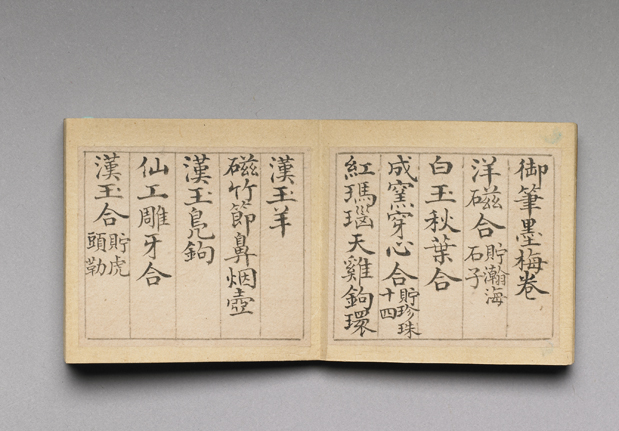 御筆墨梅卷
洋磁合貯瀚海石子
白玉秋葉合
成窯穿心合貯珍珠十四
紅瑪瑙天雞鉤環
漢玉羊
磁竹節鼻烟壺
漢玉鳧鉤
仙工雕牙合
漢玉合貯虎頭勒